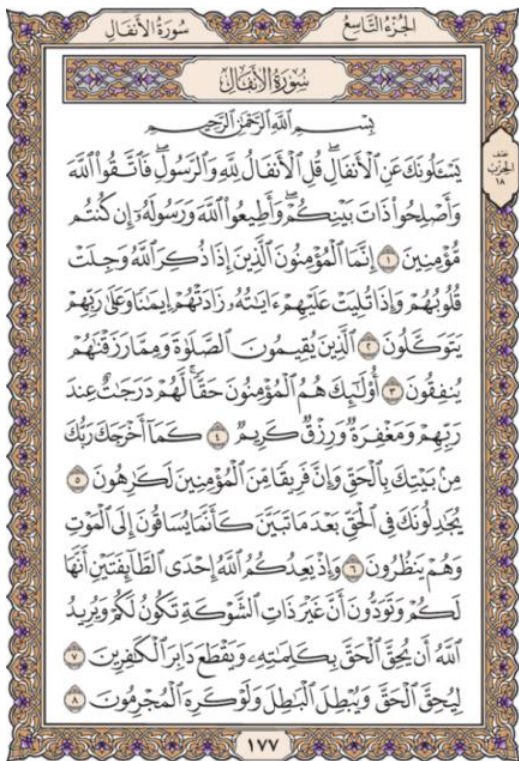 الجُزْءُ التَّاسِعُ
سُورَةُ الأَنفَالِ
سُورَةُ الأَنفَالِ
بِسْمِ ٱللَّهِ ٱلرَّحْمَٰنِ ٱلرَّحِيمِ
نصف
الحِزْب
١٨
يَسْـَٔلُونَكَ عَنِ ٱلْأَنفَالِۖ قُلِ ٱلْأَنفَالُ لِلَّهِ وَٱلرَّسُولِۖ فَٱتَّقُوا۟ ٱللَّهَ
وَأَصْلِحُوا۟ ذَاتَ بَيْنِكُمْۖ وَأَطِيعُوا۟ ٱللَّهَ وَرَسُولَهُۥٓ إِن كُنتُم
مُّؤْمِنِينَ ١ إِنَّمَا ٱلْمُؤْمِنُونَ ٱلَّذِينَ إِذَا ذُكِرَ ٱللَّهُ وَجِلَتْ
قُلُوبُهُمْ وَإِذَا تُلِيَتْ عَلَيْهِمْ ءَايَٰتُهُۥ زَادَتْهُمْ إِيمَٰنًا وَعَلَىٰ رَبِّهِمْ
يَتَوَكَّلُونَ ٢ ٱلَّذِينَ يُقِيمُونَ ٱلصَّلَوٰةَ وَمِمَّا رَزَقْنَٰهُمْ
يُنفِقُونَ ٣ أُو۟لَٰٓئِكَ هُمُ ٱلْمُؤْمِنُونَ حَقًّاۚ لَّهُمْ دَرَجَٰتٌ عِندَ
رَبِّهِمْ وَمَغْفِرَةٌ وَرِزْقٌ كَرِيمٌ ٤ كَمَآ أَخْرَجَكَ رَبُّكَ
مِنۢ بَيْتِكَ بِٱلْحَقِّ وَإِنَّ فَرِيقًا مِّنَ ٱلْمُؤْمِنِينَ لَكَٰرِهُونَ ٥
يُجَٰدِلُونَكَ فِى ٱلْحَقِّ بَعْدَ مَا تَبَيَّنَ كَأَنَّمَا يُسَاقُونَ إِلَى ٱلْمَوْتِ
وَهُمْ يَنظُرُونَ ٦ وَإِذْ يَعِدُكُمُ ٱللَّهُ إِحْدَى ٱلطَّآئِفَتَيْنِ أَنَّهَا
لَكُمْ وَتَوَدُّونَ أَنَّ غَيْرَ ذَاتِ ٱلشَّوْكَةِ تَكُونُ لَكُمْ وَيُرِيدُ
ٱللَّهُ أَن يُحِقَّ ٱلْحَقَّ بِكَلِمَٰتِهِۦ وَيَقْطَعَ دَابِرَ ٱلْكَٰفِرِينَ ٧
لِيُحِقَّ ٱلْحَقَّ وَيُبْطِلَ ٱلْبَٰطِلَ وَلَوْ كَرِهَ ٱلْمُجْرِمُونَ ٨
١٧٧